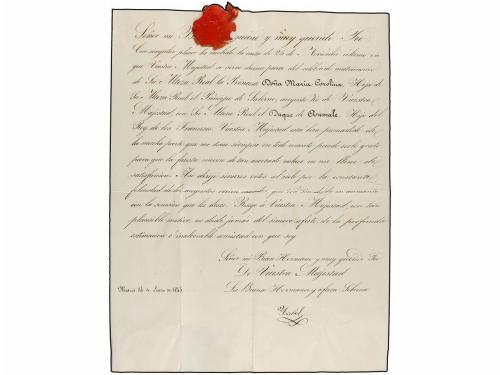 Señor mi Buen Hermano y muy querido Tio
Con singular placer he recibido la carta de 25 de Noviembre último en
que Vuestra Majestad se sirve darme parte del celebrado matrimonio
de Su Alteza Real la Princesa Doña Maria Carolina, Hija de
Su Alteza Real el Principe de Salerno, augusto Tio de Vuestra
Majestad, con Su Alteza Real el Duque de Aumale, Hijo del
Rey de los Franceses. Vuestra Majestad esta bien persuadido de
la mucha parte que me tomo siempre en todo cuanto puede serle grato
para que la fausta nueva de tan acertado enlace no me llene de
satisfaccion. Asi dirijo sinceros votos al cielo por la constante
felicidad de los augustos
con la Ruego à Vuestra Majestad, con tan
plausible motivo, no dude jamas del sincero afecto, de la profunda
estimacion è inalterable amistad con que soy
Señor mi Buen Hermano y muy querido Tio
De Vuestra Majestad
La Buena Hermana y afecta Sobrina
Madrid 14 de Enero de 1845.
Ysabel